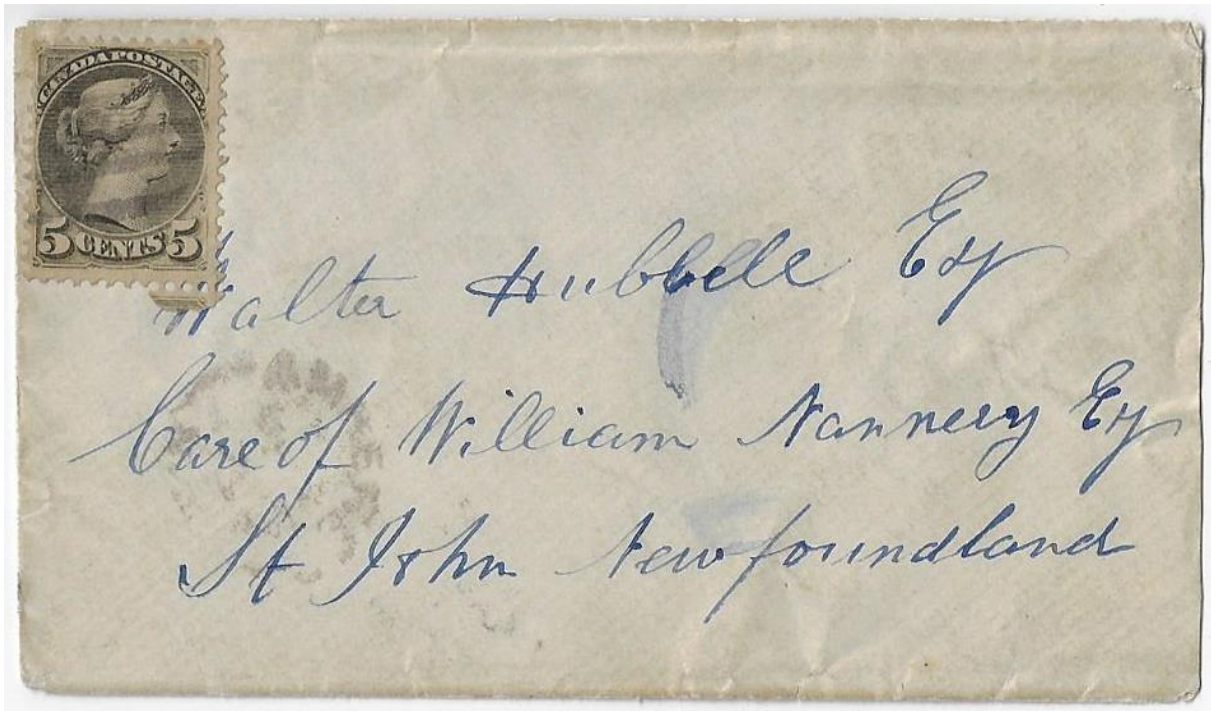 CANADA POSTAGE
5 CENTS 5
Walter Hubbell Esq
Care of William Nannery Esq
St John Newfoundland